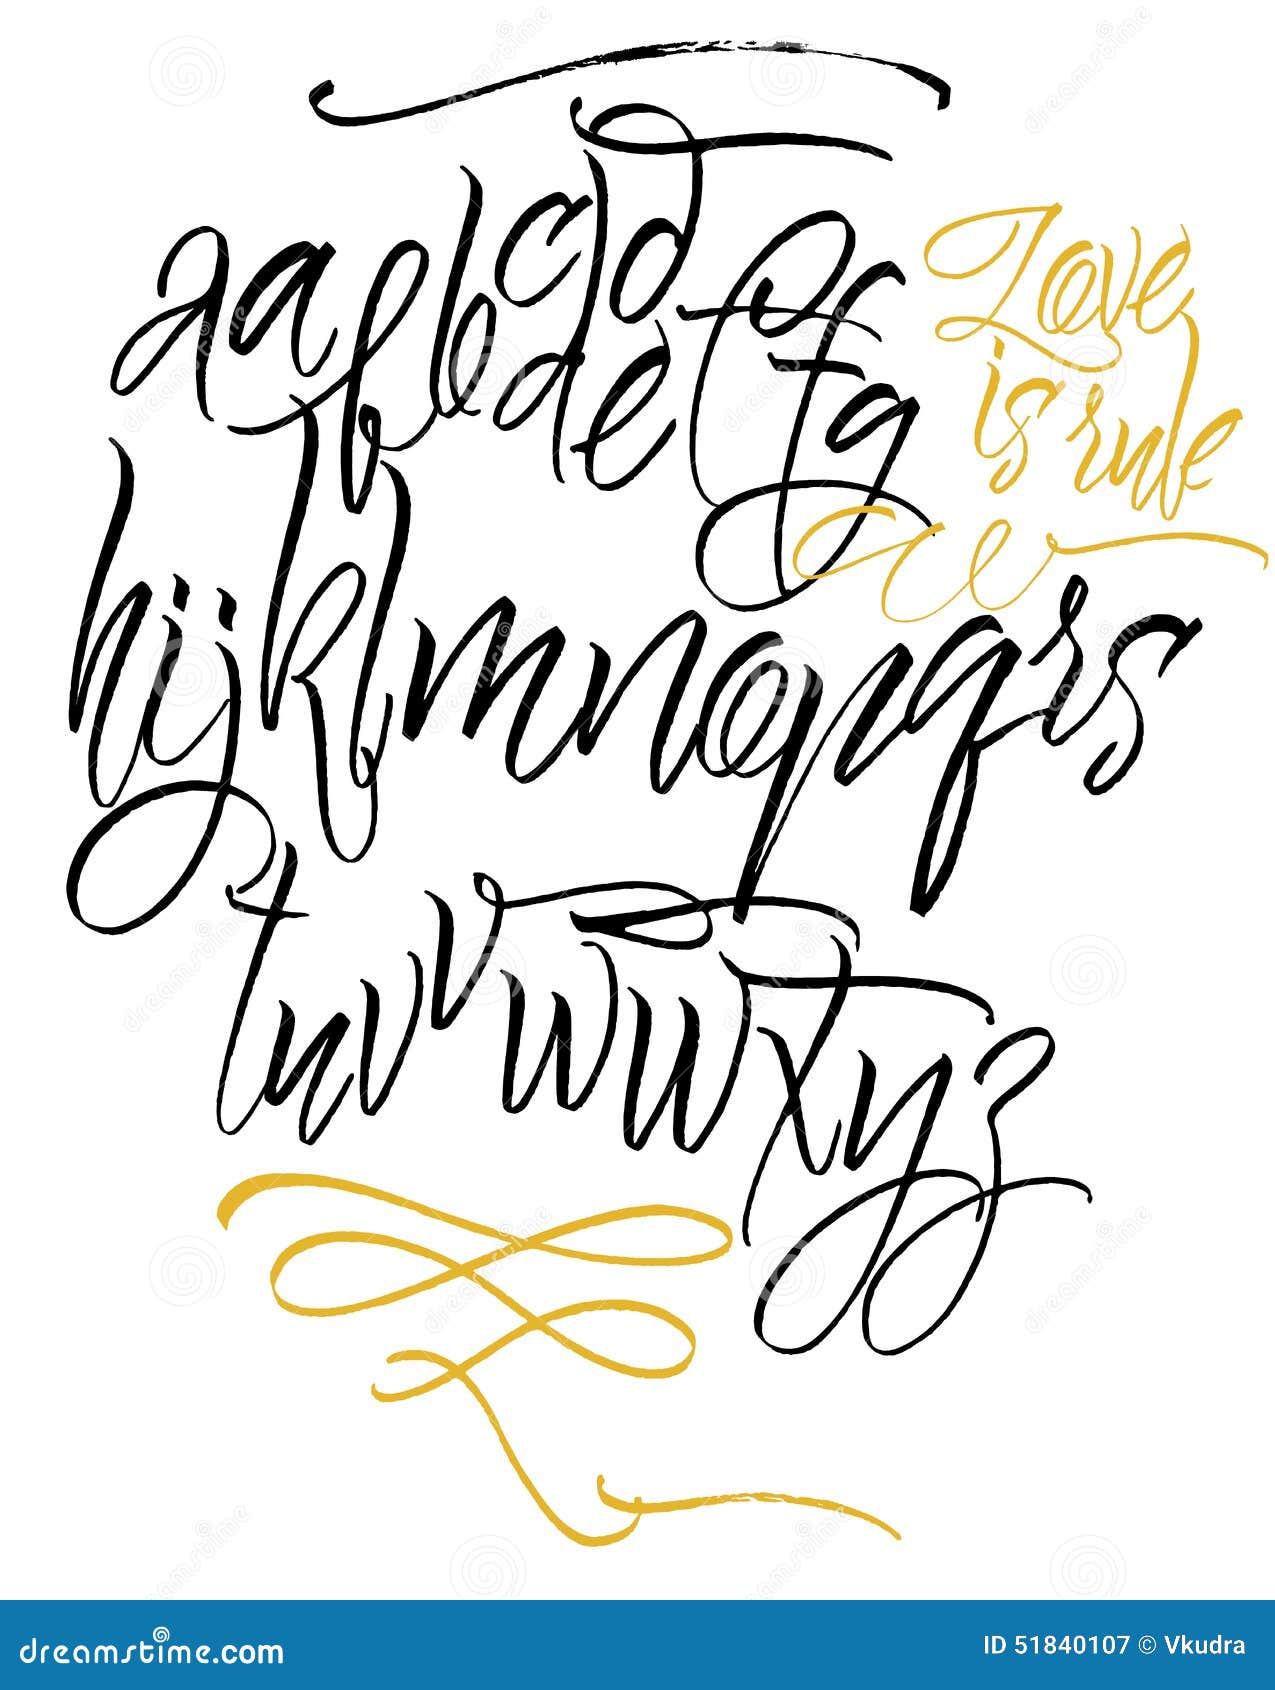 aabbcdd
deefg
Love
is rule
hijklmnopqrs
tuvvwwxyz
dreamstime.com
ID 51840107 © Vkudra